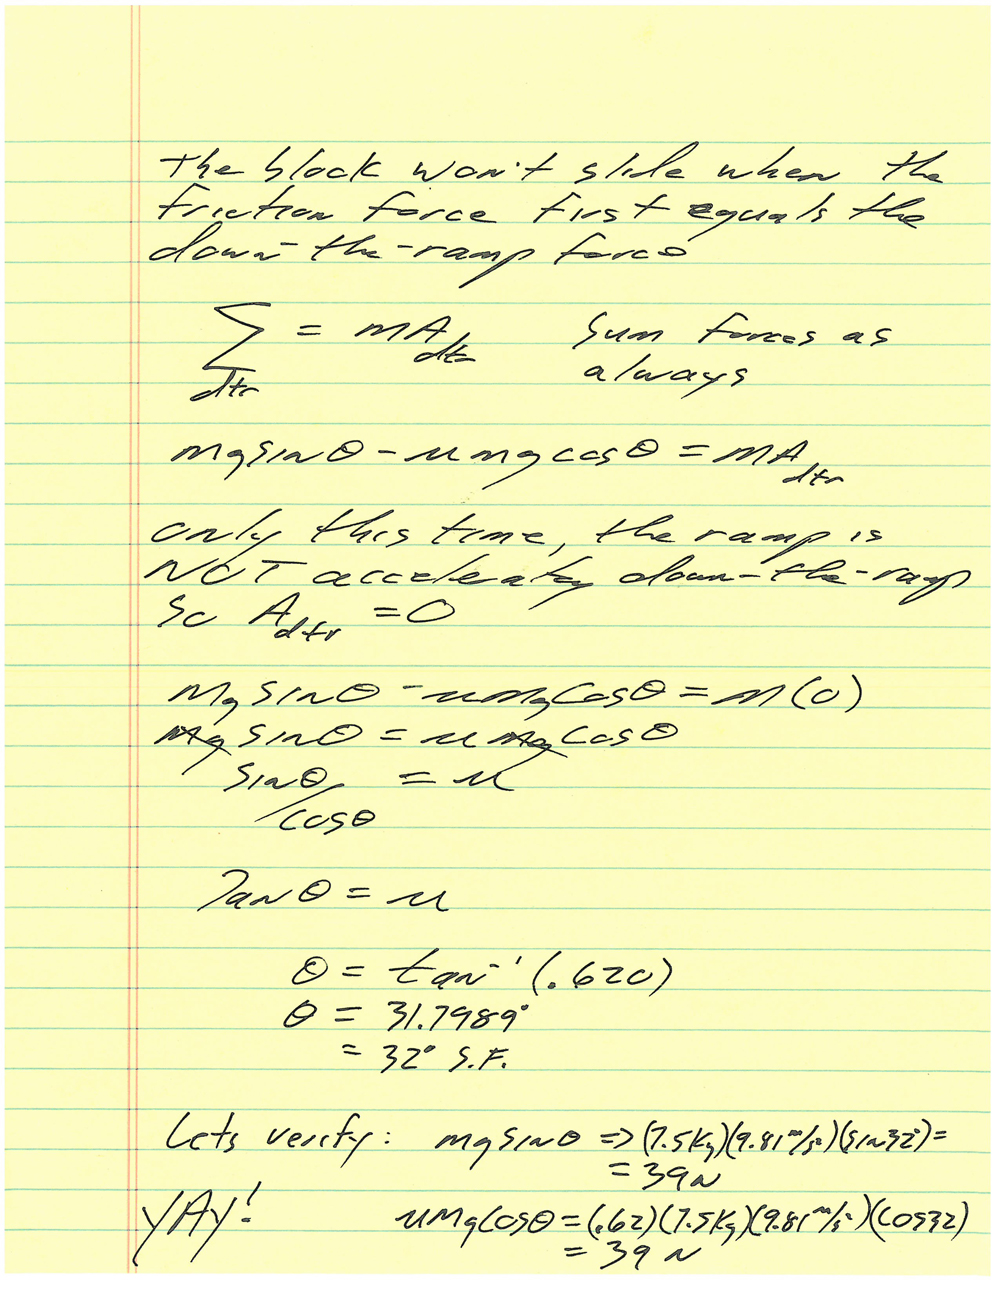 The block won't slide when the
friction force first equals the
down-the-ramp force
∑ = mA_dtr   Sum forces as
dtr   always
mg sin θ - μ mg cos θ = mA_dtr
only this time, the ramp is
NOT accelerating down-the-ramp
So A_dtr = 0
Mg sin θ - μ mg cos θ = M(0)
Mg sin θ = μ Mg cos θ
sin θ/cos θ = μ
Tan θ = μ
θ = tan⁻¹(.620)
θ = 31.7989°
= 32° S.F.
Lets verify: mg sin θ => (7.5Kg)(9.81m/s²)(sin 32°) =
= 39 N
YAY! μ Mg cos θ = (.62)(7.5Kg)(9.81m/s²)(cos 32)
= 39 N